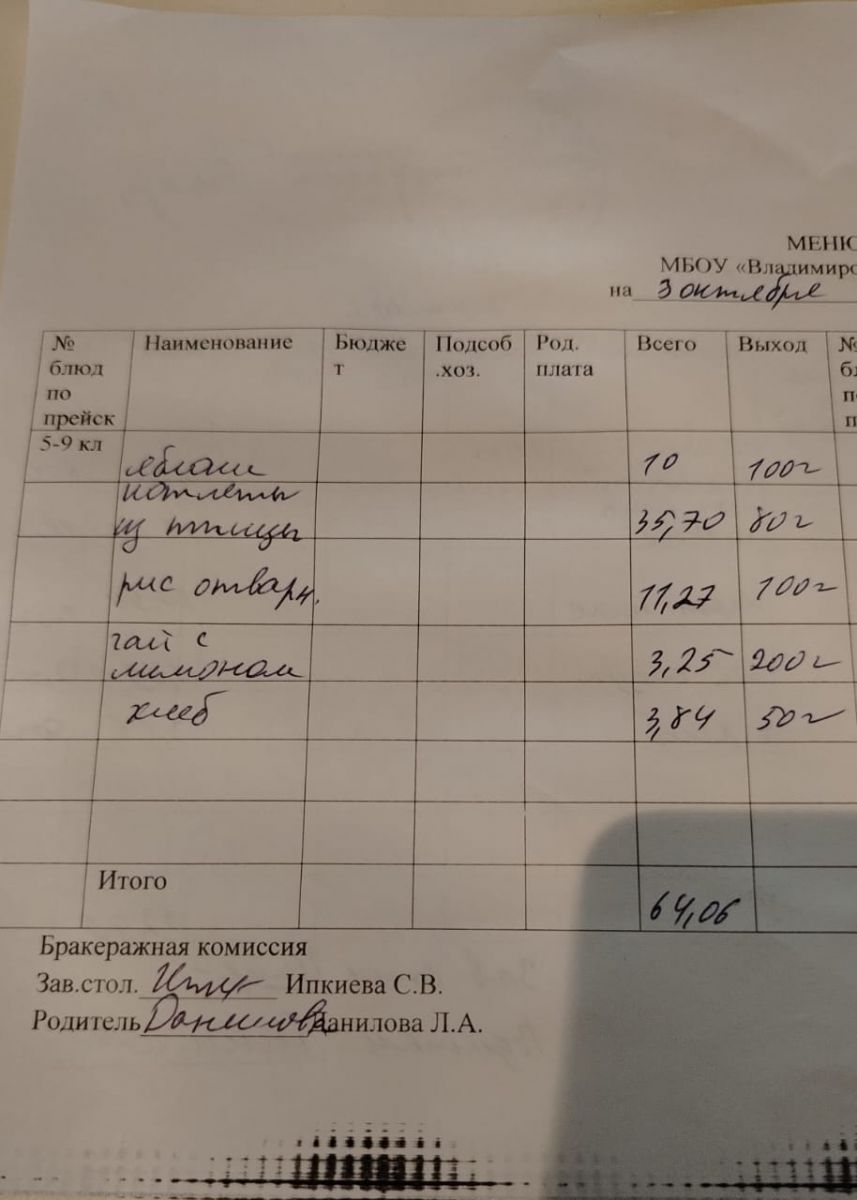 МЕНЮ
МБОУ «Владимиро
на 3 октября
№ блюд по прейск Наименование Бюдже т Подсоб .хоз. Род. плата Всего Выход №
5-9 кл яблоки 10 100г
котлеты
из птицы 35,70 80г
рис отварн. 11,27 100г
чай с
лимоном 3,25 200г
хлеб 3,84 50г
Итого 64,06
Бракеражная комиссия
Зав.стол. Ипкиева С.В.
Родитель Данилова Данилова Л.А.